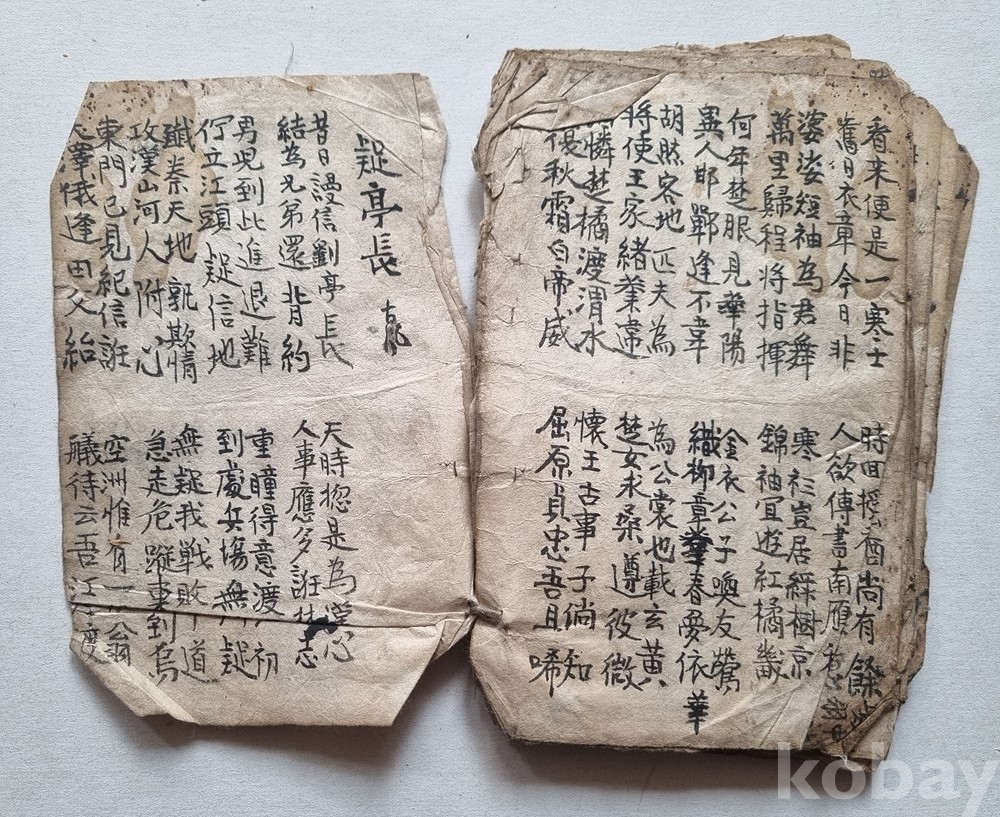 看來便是一寒士
舊日衣章今日非
婆娑短袖為君舞
萬里歸程將指揮
何年楚服見華陽
異人邯鄲逢不韋
胡然客地匹夫為
將使王家緒業違
憐楚橘渡渭水
侵秋霜白帝威
時回授酒尚有餘
人欲傳書南雁
寒衫豈居綠樹京
錦袖宜遊紅橘畿
金衣公子喚友鶯
織柳章春夢依華
為公裳也載玄黃
楚女求桑遵彼微
懷王古事子倘知
屈原貞忠吾且唏
疑亭長
昔日誤信劉亭長
結為兄弟還背約
男兒到此進退難
佇立江頭疑信地
殲秦天地孰欺情
攻漢山河人附心
東門已見紀信誑
澤俄逢田父紿
天時摠是為漢心
人事應多誑楚志
重瞳得意渡初
到處兵塲無疑
無疑我戰敗道
急走危蹤東到烏
空洲惟有一翁
艤待云吾江渡
kobay